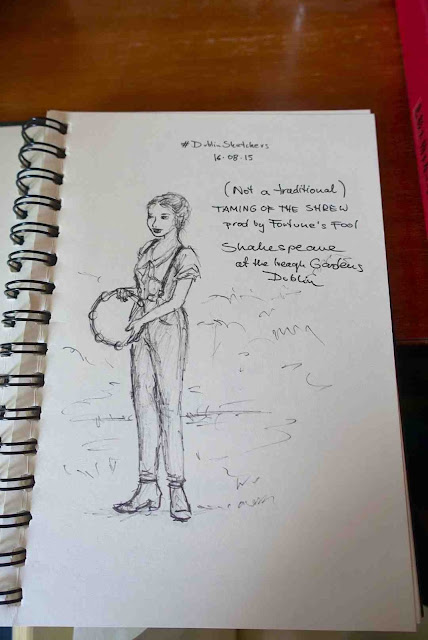 #DublinSketchers
16.08.15
(Not a traditional)
TAMING OF THE SHREW
prod by Fortune's Fool
Shakespeare
at the Iveagh Gardens
Dublin